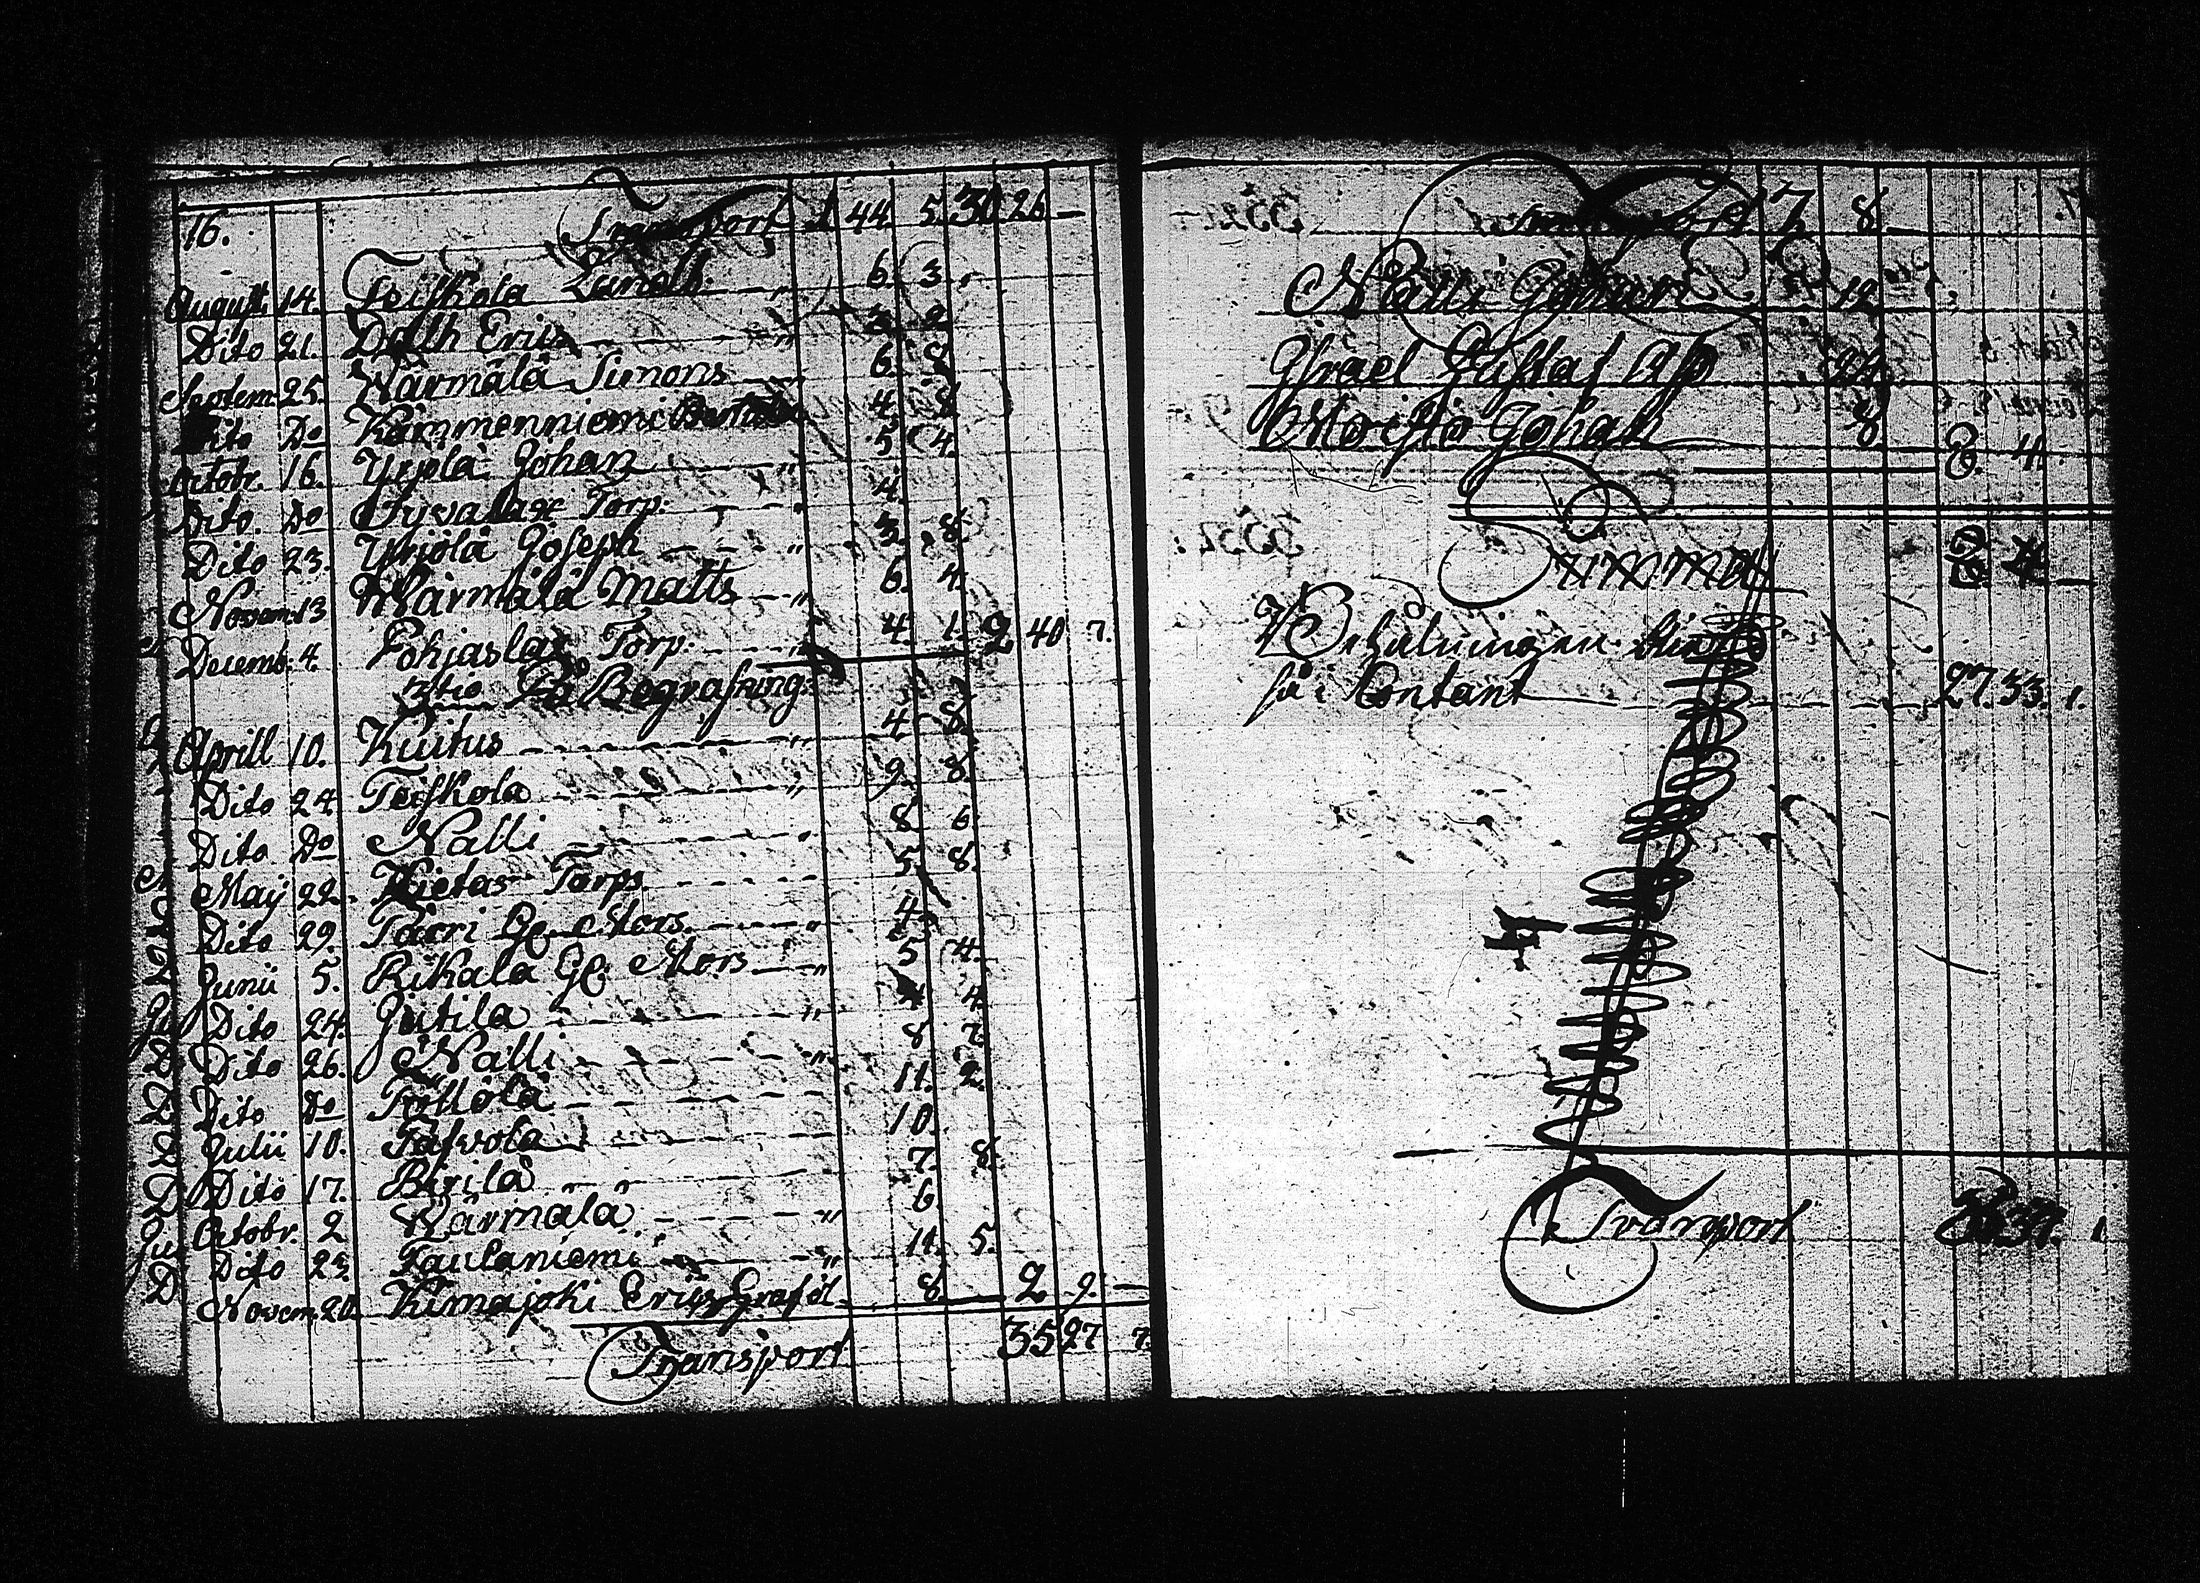 16. Transport 1 44. 5. 30 26 —
August. 14. Teiskola Zunds. „ 6. 3.
Dito 21. Dalh Eric „ 3. 2.
Septem. 25. Wärmälä Simons „ 6. 8.
Dito Do Kämmenniemi 4. 8.
Octobr. 16. Yrjölä Johan „ 5. 4.
Dito. Do Torp. „ 4.
Dito 23. Yrjölä Joseph „ 3. 8.
Novem. 13 Wärmälä Matts „ 6. 4.
Decemb. 4. Pohjaslax Torp. „ 4. 1. 2 40 7.
3tio På Begrafning.
Aprill 10. Kuitus „ 4. 8.
Dito 24. Teiskola „ 9. 8.
Dito Do Nälli „ 8. 6.
Maij 22. Kietas Torps 5. 8.
Dito 29. Pärri Gg. Mors. „ 4.
Junii 5. Rikala Gg. Mors „ 5. 4.
Dito 24. Jutila „ 4 4.
Dito 26. Nälli „ 8 7.
Dito Do Pöllölä 11. 2.
Julii 10. Paavola 10.
Dito 17. Birilä 7. 8.
Octobr. 2 Wärmälä „ 6
Dito 23. Taulaniemi „ 11. 5.
Novem. 20. Kimajoki Erics Graföl 8. 2 9. —
Transport 35 27 7.
Transport 7 8
Nälli Johan 12
Israel Gustaf Asp 24
Moisio Johan 8 8. 4.
Summa 8 4 —
Behållningen
så i Contant 27. 33. 1.
Transport 37. 1